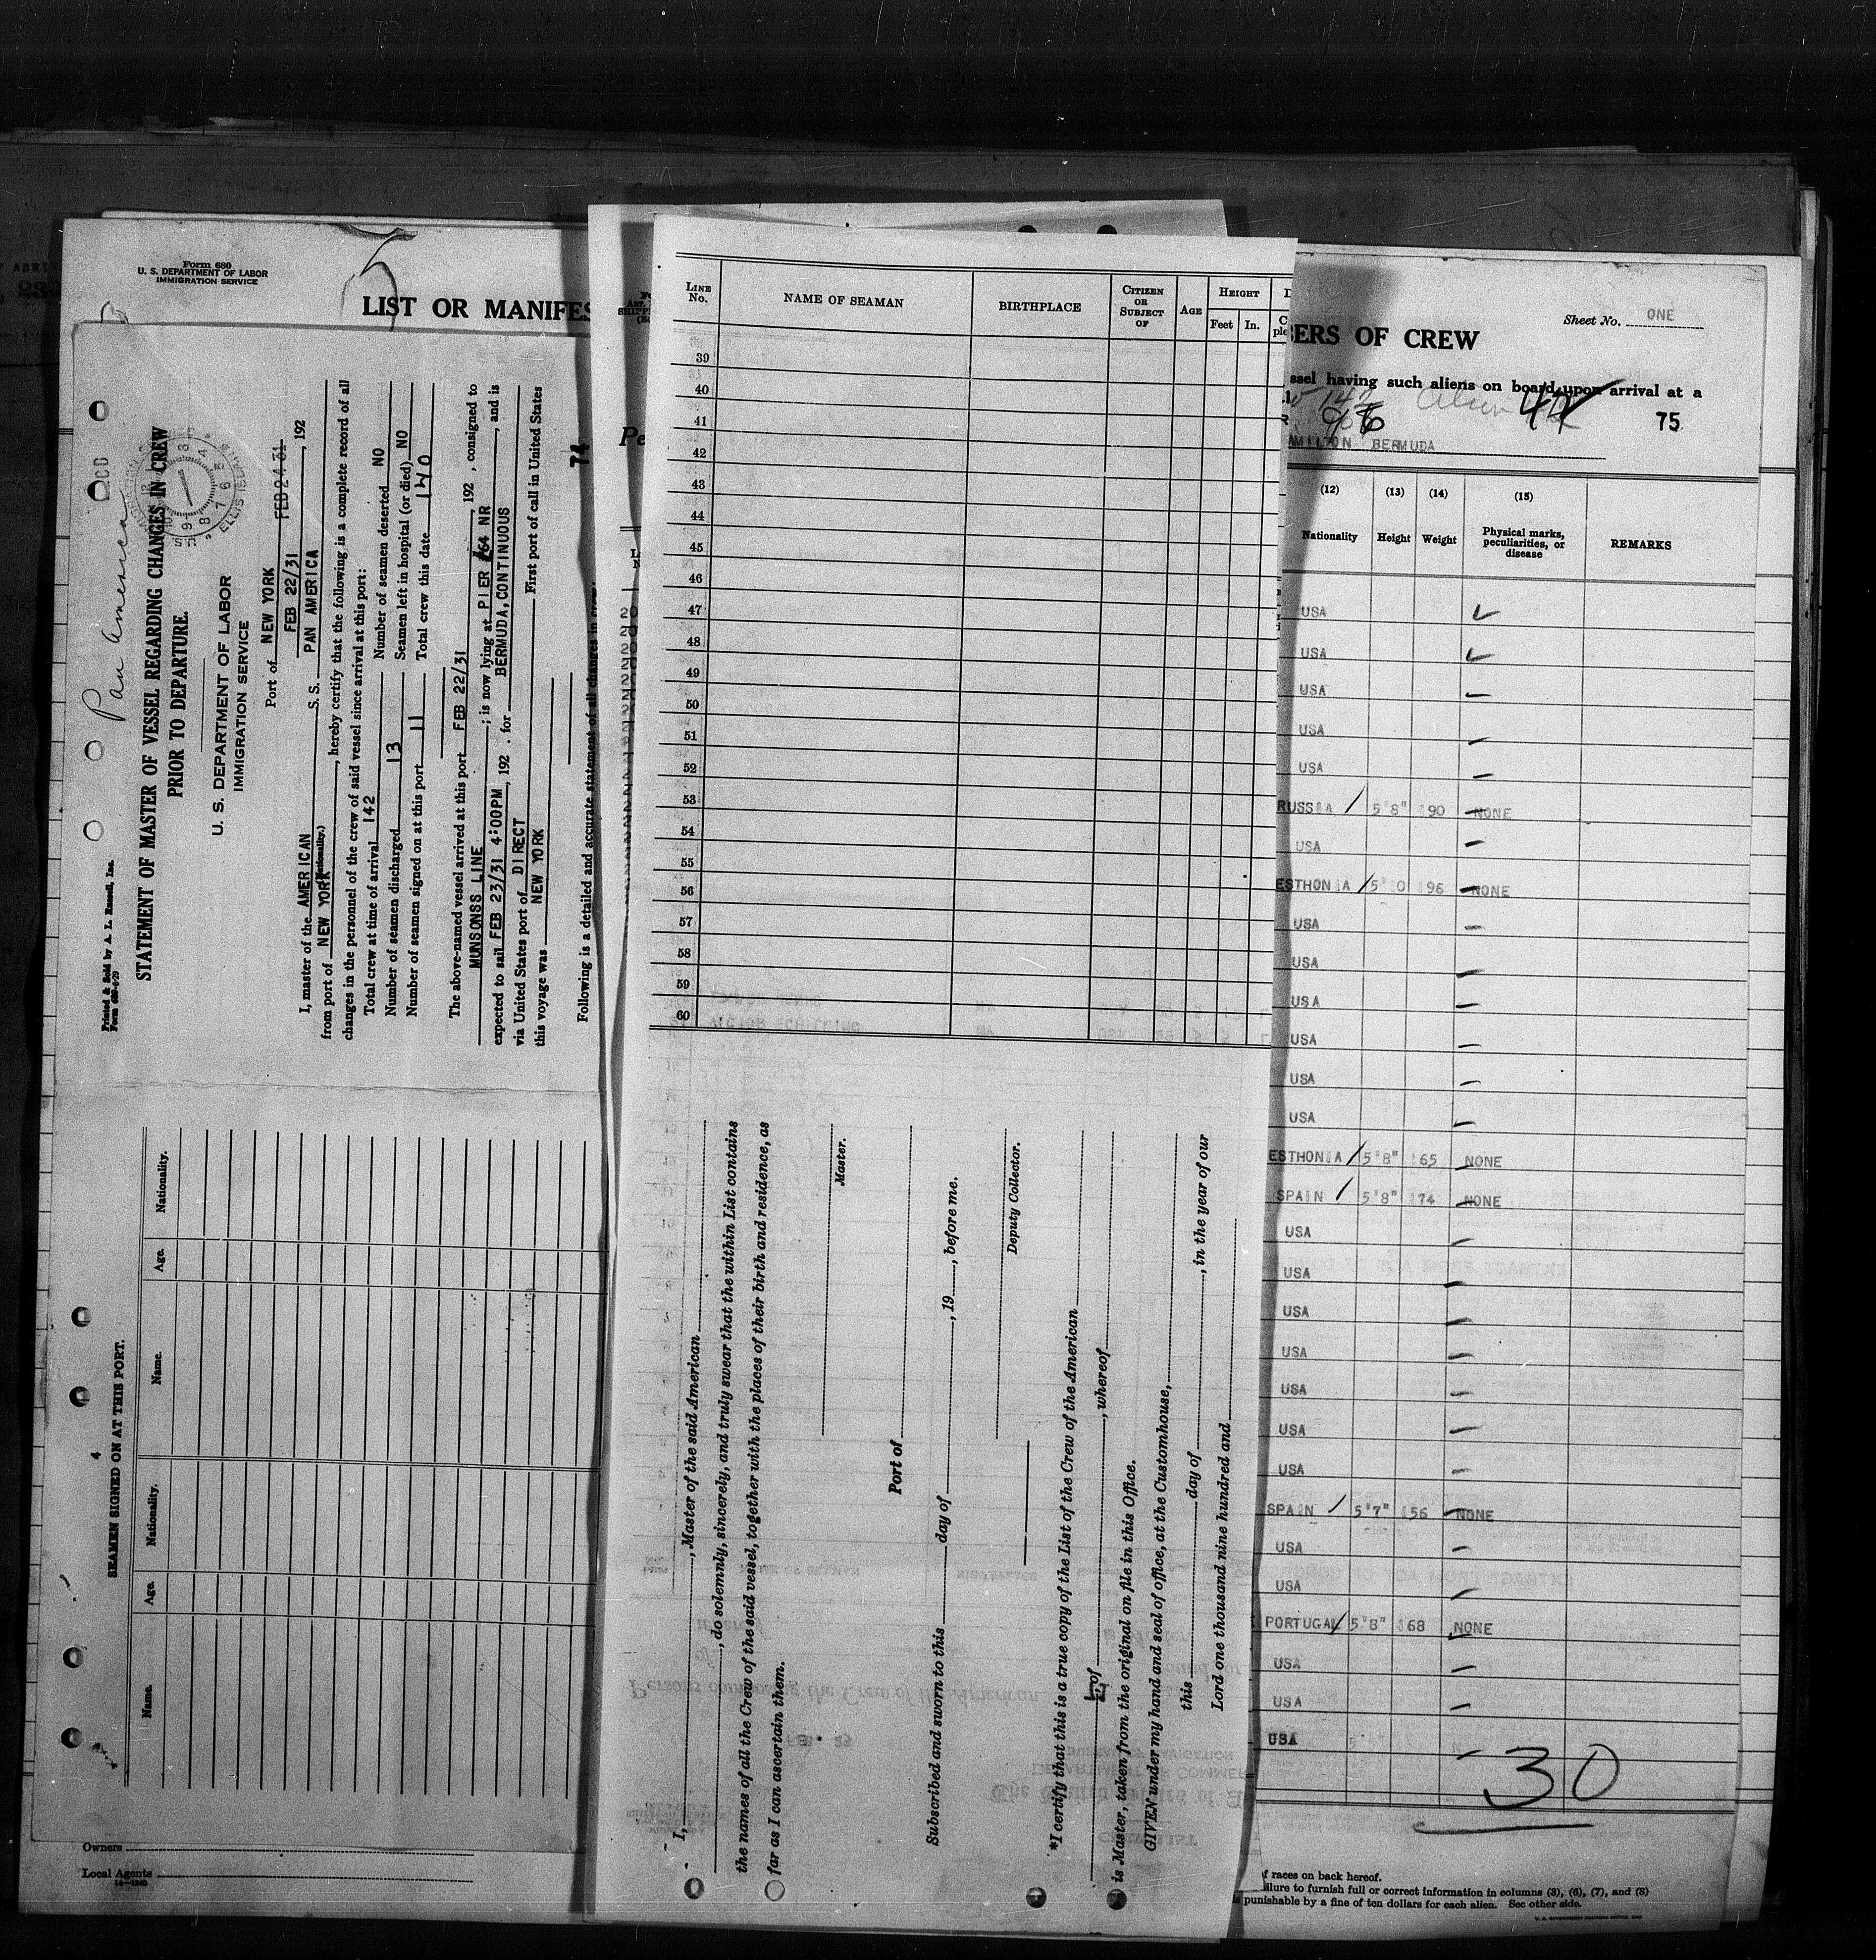 Form 680
U. S. DEPARTMENT OF LABOR
IMMIGRATION SERVICE
5
LIST OR MANIFES
Pan America
Printed & Sold by A. L. Russell, Inc.
STATEMENT OF MASTER OF VESSEL REGARDING CHANGES IN CREW
PRIOR TO DEPARTURE.
U. S. DEPARTMENT OF LABOR
IMMIGRATION SERVICE
ELLIS ISLAND
Port of NEW YORK FEB 24 31
FEB 22/31, 192
I, master of the AMERICAN S. S. PAN AMERICA
(Nationality.)
from port of NEW YORK, hereby certify that the following is a complete record of all
changes in the personnel of the crew of said vessel since arrival at this port:
Total crew at time of arrival 142 Number of seamen deserted NO
Number of seamen discharged 13 Seamen left in hospital (or died) NO
Number of seamen signed on at this port 11 Total crew this date 140
The above-named vessel arrived at this port FEB 22/31, 192 , consigned to
MUNSONSS LINE ; is now lying at PIER 64 NR, and is
expected to sail FEB 23/31 4:00PM, 192 . for BERMUDA, CONTINUOUS
via United States port of DIRECT First port of call in United States
this voyage was NEW YORK
74
Following is a detailed and accurate statement of all changes in crew.
4
SEAMEN SIGNED ON AT THIS PORT.
Name. Age. Nationality. Name. Age. Nationality.
Owners
Local Agents
LINE No. NAME OF SEAMAN BIRTHPLACE CITIZEN OR SUBJECT OF AGE HEIGHT
Feet In.
39
40
41
42
43
44
45
46
47
48
49
50
51
52
53
54
55
56
57
58
59
60
I, , Master of the said American
, do solemnly, sincerely, and truly swear that the within List contains
the names of all the Crew of the said vessel, together with the places of their birth and residence, as
far as I can ascertain them.
Master.
Port of
Subscribed and sworn to this day of , 19 , before me.
Deputy Collector.
*I certify that this is a true copy of the List of the Crew of the American
of , whereof
is Master, taken from the original on file in this Office.
GIVEN under my hand and seal of office, at the Customhouse,
this day of , in the year of our
Lord one thousand nine hundred and
Sheet No. ONE
BERS OF CREW
ssel having such aliens on board upon arrival at a
75
AMILTON BERMUDA
(12) (13) (14) (15)
Nationality Height Weight Physical marks, peculiarities, or disease REMARKS
USA
USA
USA
USA
USA
RUSSIA 5'8" 190 NONE
USA
ESTHONIA 5'10 196 NONE
USA
USA
USA
USA
USA
USA
ESTHONIA 5'8" 165 NONE
SPAIN 5'8" 174 NONE
USA
USA
USA
USA
USA
USA
USA
SPAIN 5'7" 156 NONE
USA
USA
PORTUGAL 5'8" 168 NONE
USA
USA
USA
30
of races on back hereof.
ailure to furnish full or correct information in columns (3), (6), (7), and (8)
is punishable by a fine of ten dollars for each alien. See other side.